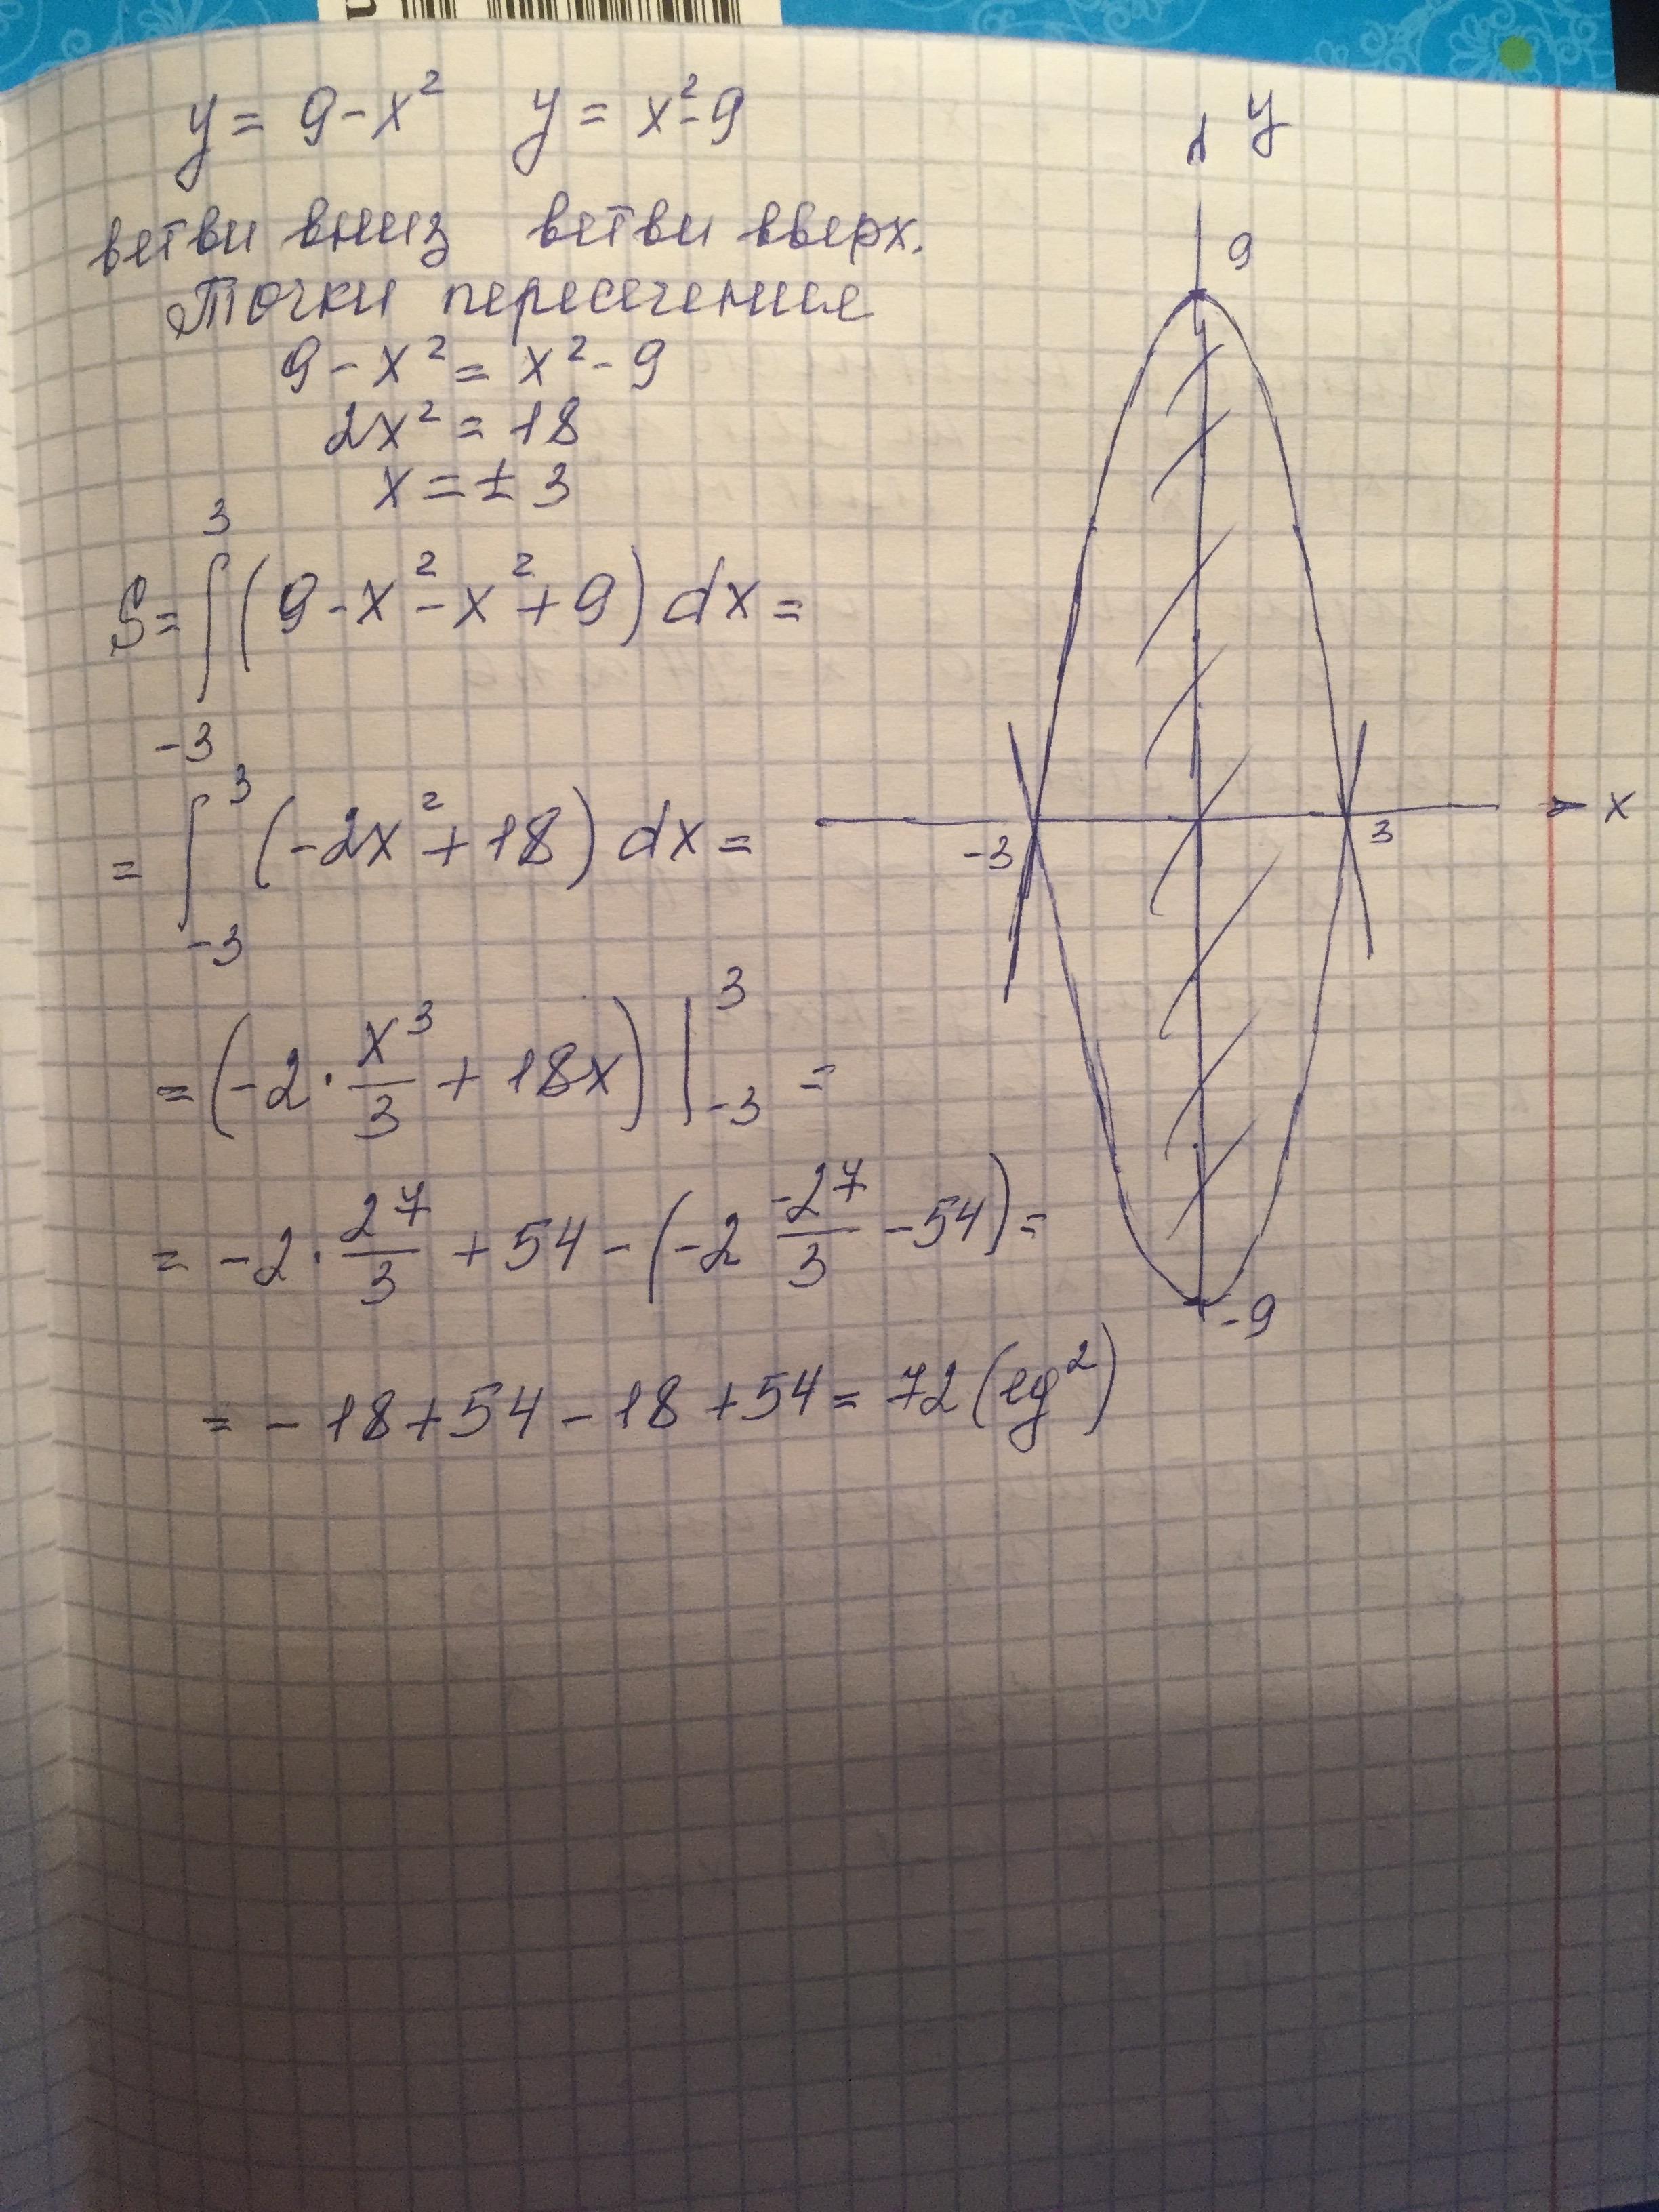 y = 9 - x² y = x² - 9
ветви вниз ветви вверх.
Точки пересечение
9 - x² = x² - 9
2x² = 18
x = ± 3
S = ∫₋₃³ (9 - x² - x² + 9) dx =
= ∫₋₃³ (-2x² + 18) dx =
= (-2 · x³/3 + 18x) |₋₃³ =
= -2 · 27/3 + 54 - (-2 -27/3 - 54) =
= - 18 + 54 - 18 + 54 = 72 (ед²)
y
9
-3
3
x
-9